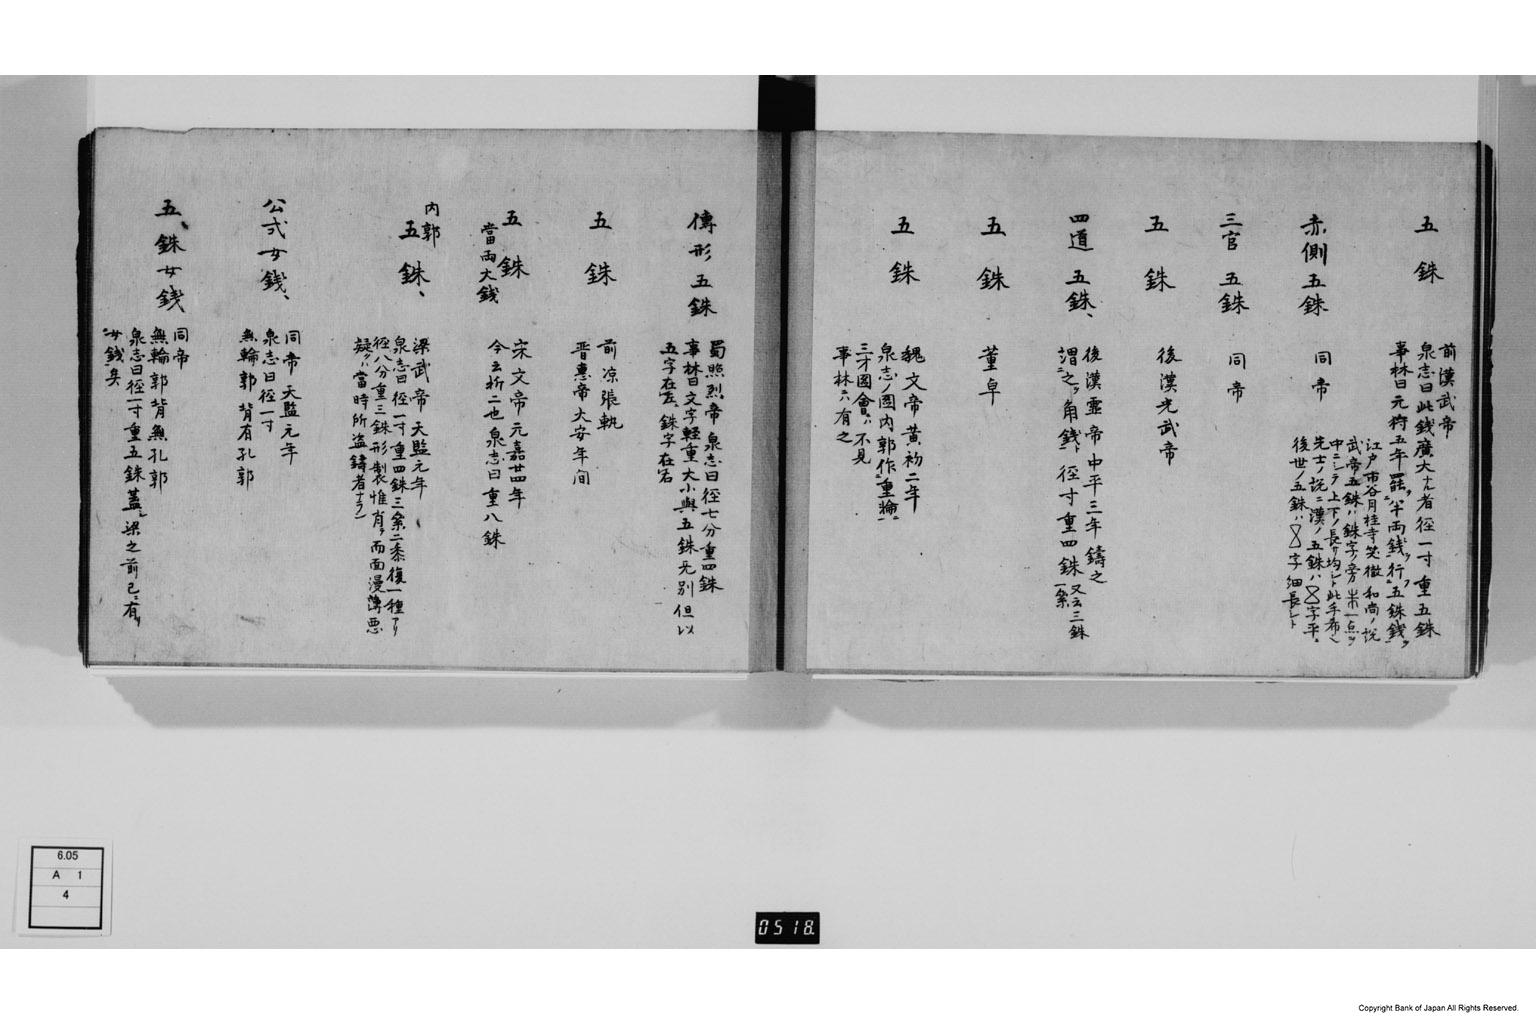 五銖
前漢武帝
泉志曰此錢廣大ナル者徑一寸重五銖
事林曰元狩五年罷半兩錢行五銖錢
江戸市谷月桂寺笑徹和尚ノ説
武帝五銖ハ銖字ノ旁朱一点ヲ
中ニシテ上下ノ長サ均シト此手希也
先士ノ説ニ漢ノ五銖ハ五字平
後世ノ五銖ハ五字細長シト
赤側五銖
同帝
三官五銖
同帝
五銖
後漢光武帝
四道五銖、
後漢靈帝中平三年鑄之
謂之ヲ角錢ト徑寸重四銖又云三銖
一絫
五銖
董卓
五銖
魏文帝黄初二年
泉志ノ圖内郭作重輪ニ
三才圖會ニハ不見
事林ニハ有之
傳形五銖
蜀照烈帝泉志曰徑七分重四銖
事林曰文字輕重大小與五銖无別但以
五字在左、銖字在右
五銖
前凉張軌
晋惠帝大安年间
五銖
當兩大錢
宋文帝元嘉廿四年
今云折二也泉志曰重八銖
内郭
五銖、
梁武帝天監元年
泉志曰徑一寸重四銖三絫二黍復一種アリ
徑八分重三銖形製惟肖テ而面漫薄悪
疑クハ當時所盗鑄者ナラン
公式女錢、
同帝天監元年
泉志曰徑一寸
無輪郭背有孔郭
五銖女錢
同帝
無輪郭背無孔郭
泉志曰徑一寸重五銖蓋シ梁之前已ニ有リ
女錢矣
6.05
A 1
4
0518.
Copyright Bank of Japan All Rights Reserved.